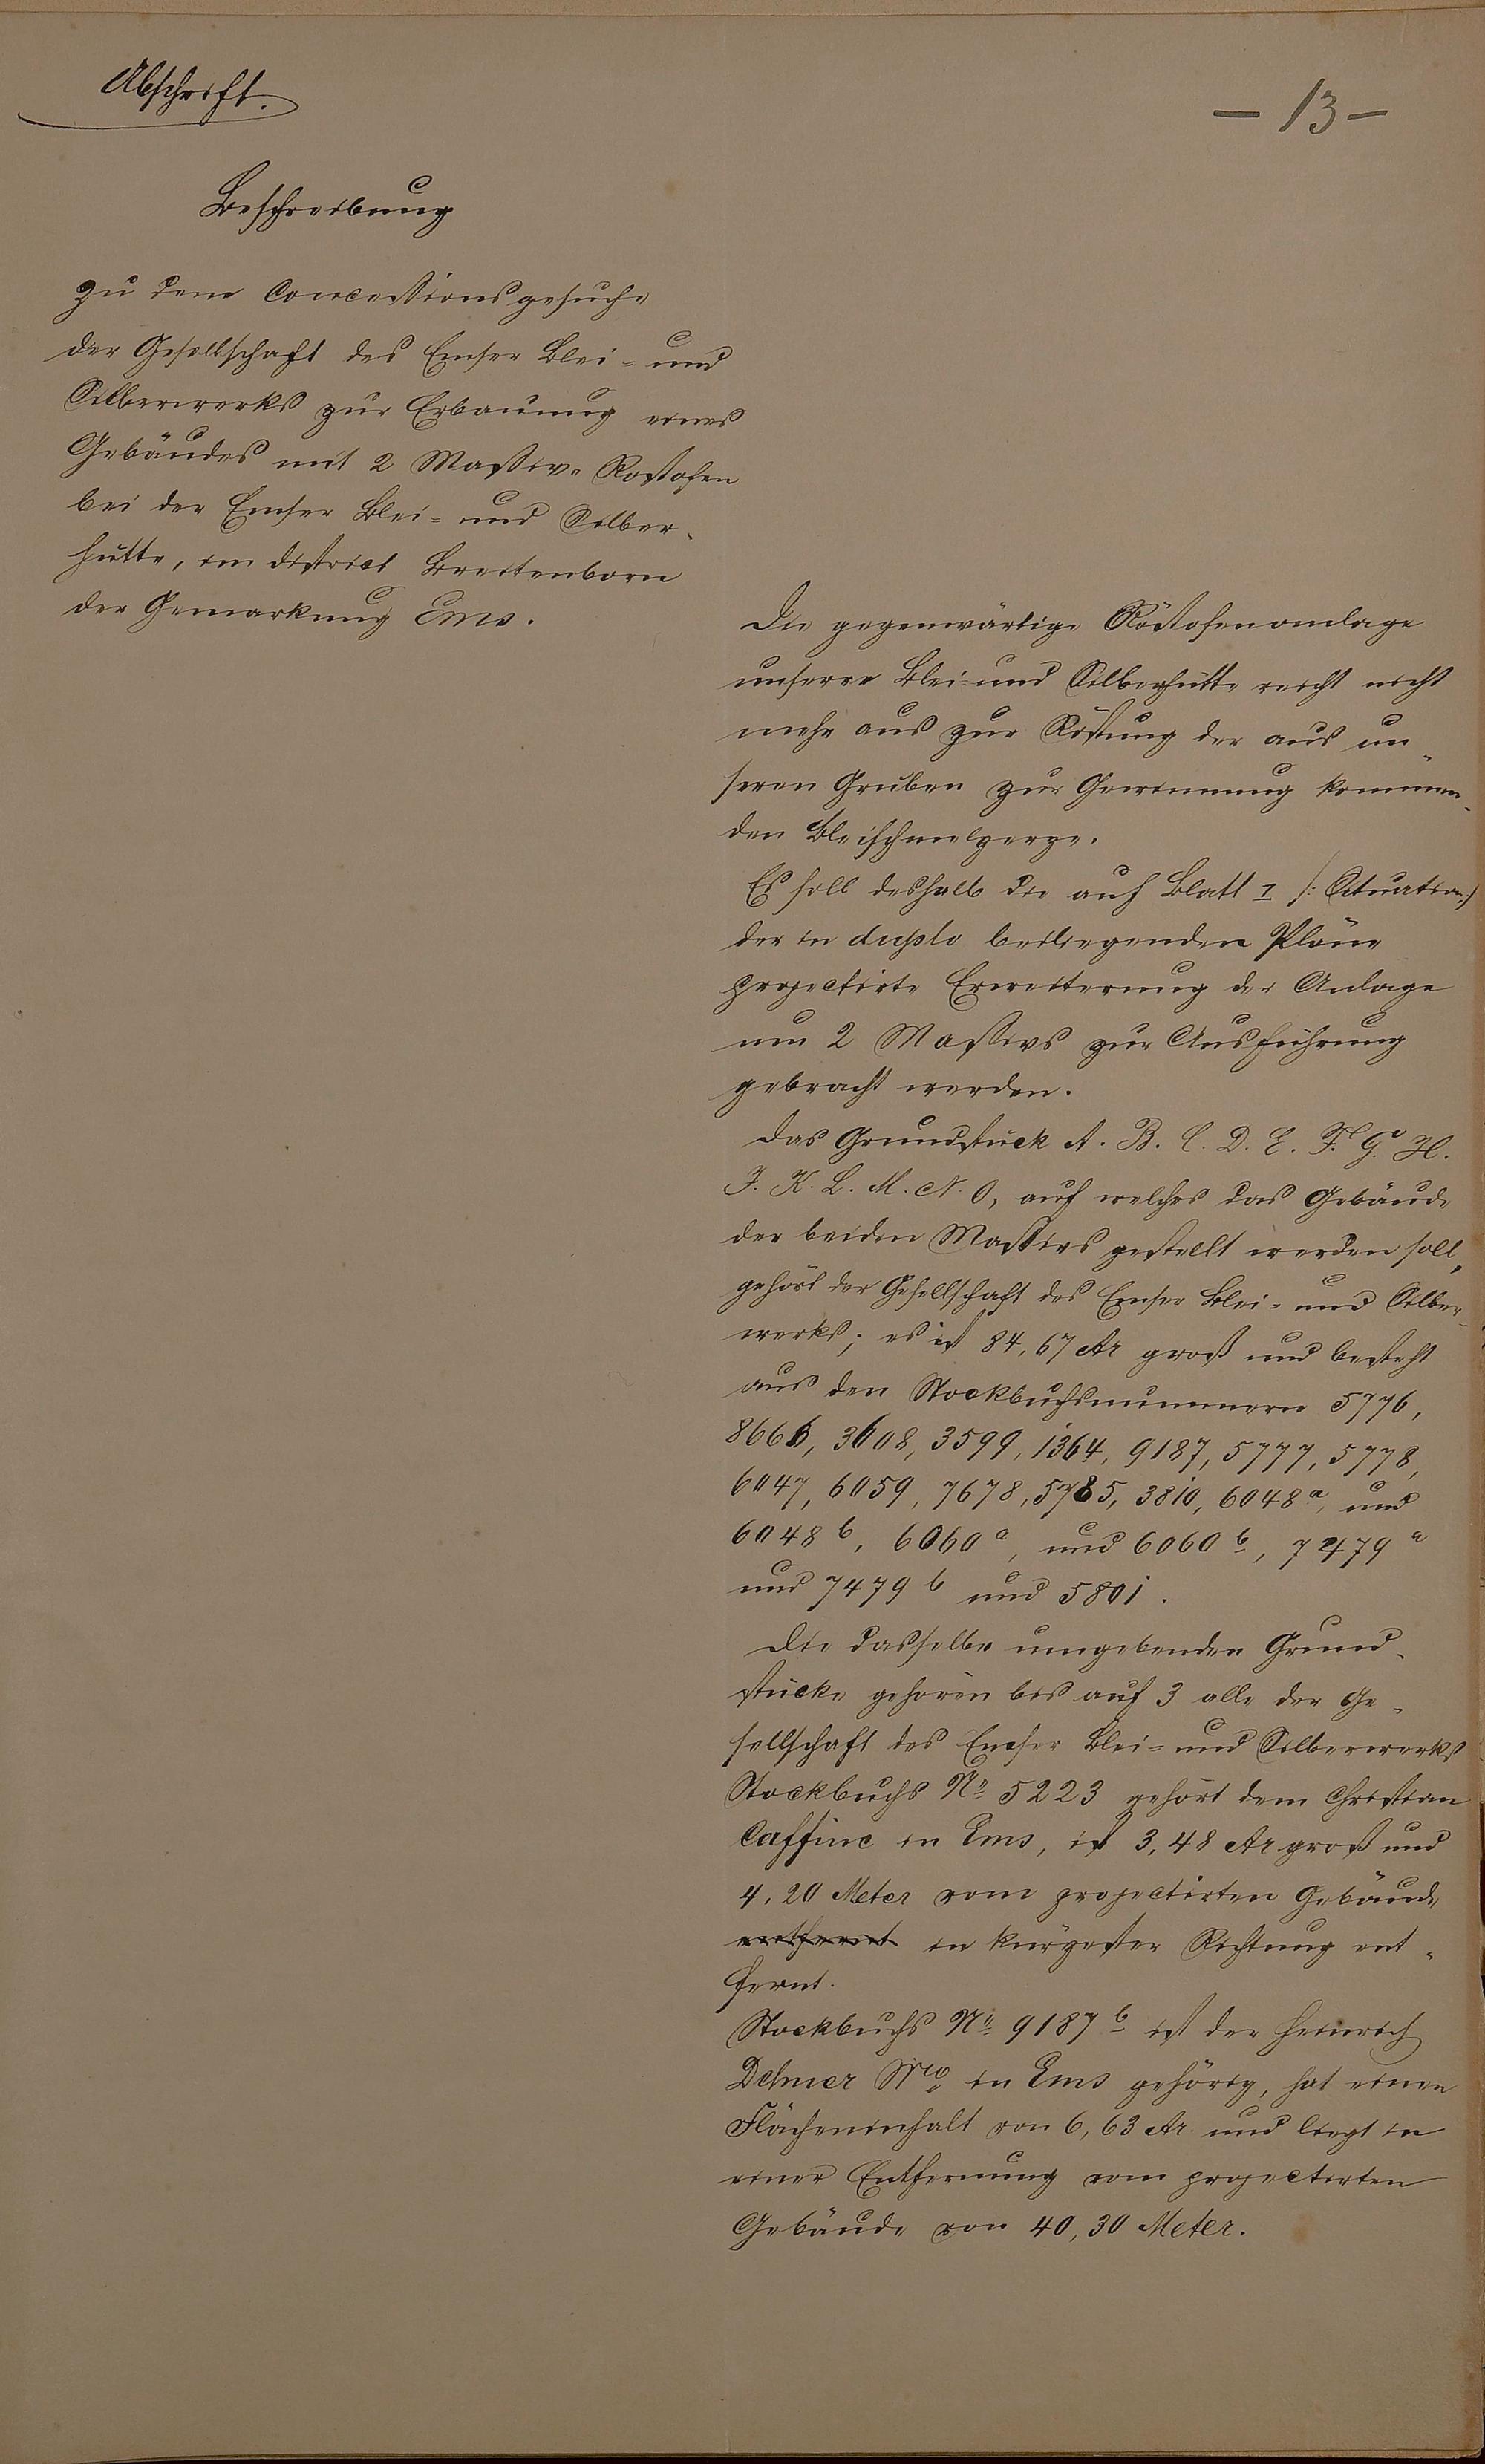 Abschrift.
- 13 -
Beschreibung
zu dem Concessionsgesuche
der Gesellschaft des Emser Blei- und
Silberwerks zur Erbauung eines
Gebäudes mit 2 Massiv-Rostofen
bei der Emser Blei- und Silber-
hütte, im District Breitenborn
der Gemarkung Ems.
Die gegenwärtige Röstofenanlage
unserer Blei- und Silberhütte reicht nicht
mehr aus zur Röstung der aus un-
seren Gruben zur Gewinnung kommen-
den Bleischmelzerze.
Es soll deshalb die auf Blatt I /: Situation :/
der in duplo beiliegenden Pläne
projectirte Erweiterung der Anlage
um 2 Massivs zur Ausführung
gebracht werden.
Das Grundstück A. B. C. D. E. F. G. H.
J. K. L. M. N. O, auf welches das Gebäude
der beiden Massivs gestellt werden soll,
gehört der Gesellschaft des Emser Blei- und Silber-
werks; es ist 84,67 Ar groß und besteht
aus den Stockbuchsnummern 5776,
8666, 3608, 3599, 1364, 9187, 5777, 5778,
6047, 6059, 7678, 5785, 3810, 6048 a, und
6048 b, 6060 a, und 6060 b, 7479 a
und 7479 b und 5801.
Die dasselbe umgebenden Grund-
stücke gehören bis auf 3 alle der Ge-
sellschaft des Emser Blei- und Silberwerks
Stockbuchs No 5223 gehört dem Christian
Caffine in Ems, ist 3,48 Ar groß und
4,20 Meter vom projectirten Gebäude
entfernt in kürzester Richtung ent-
fernt.
Stockbuchs No 9187 b ist der Heinrich
Dehner Wwe in Ems gehörig, hat einen
Flächeninhalt von 6,63 Ar und liegt in
einer Entfernung vom projectirten
Gebäude von 40,30 Meter.